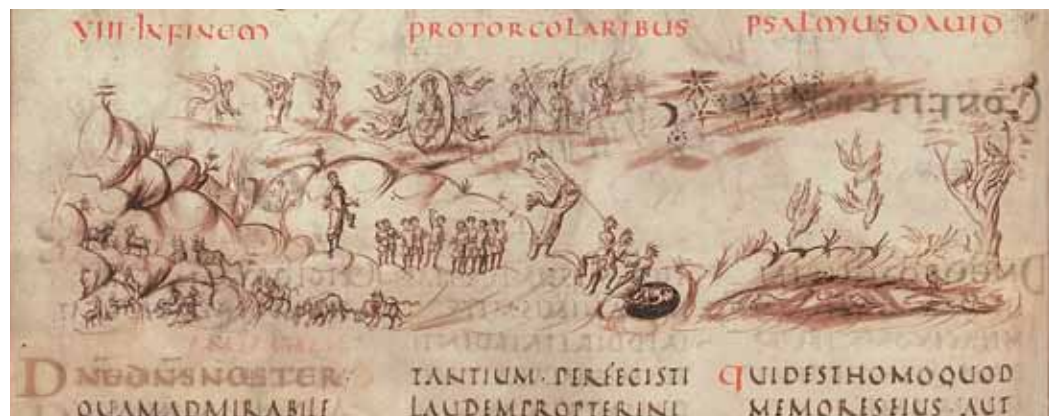 VIII · INFINEM PROTORCOLARIBUS PSALMUSDAUID
DNEDNSNOSTER·
QUAMADMIRABILE
TANTIUM · PERFECISTI
LAUDEMPROPTERINI
QUIDESTHOMOQUOD
MEMORESEIUS · AUT